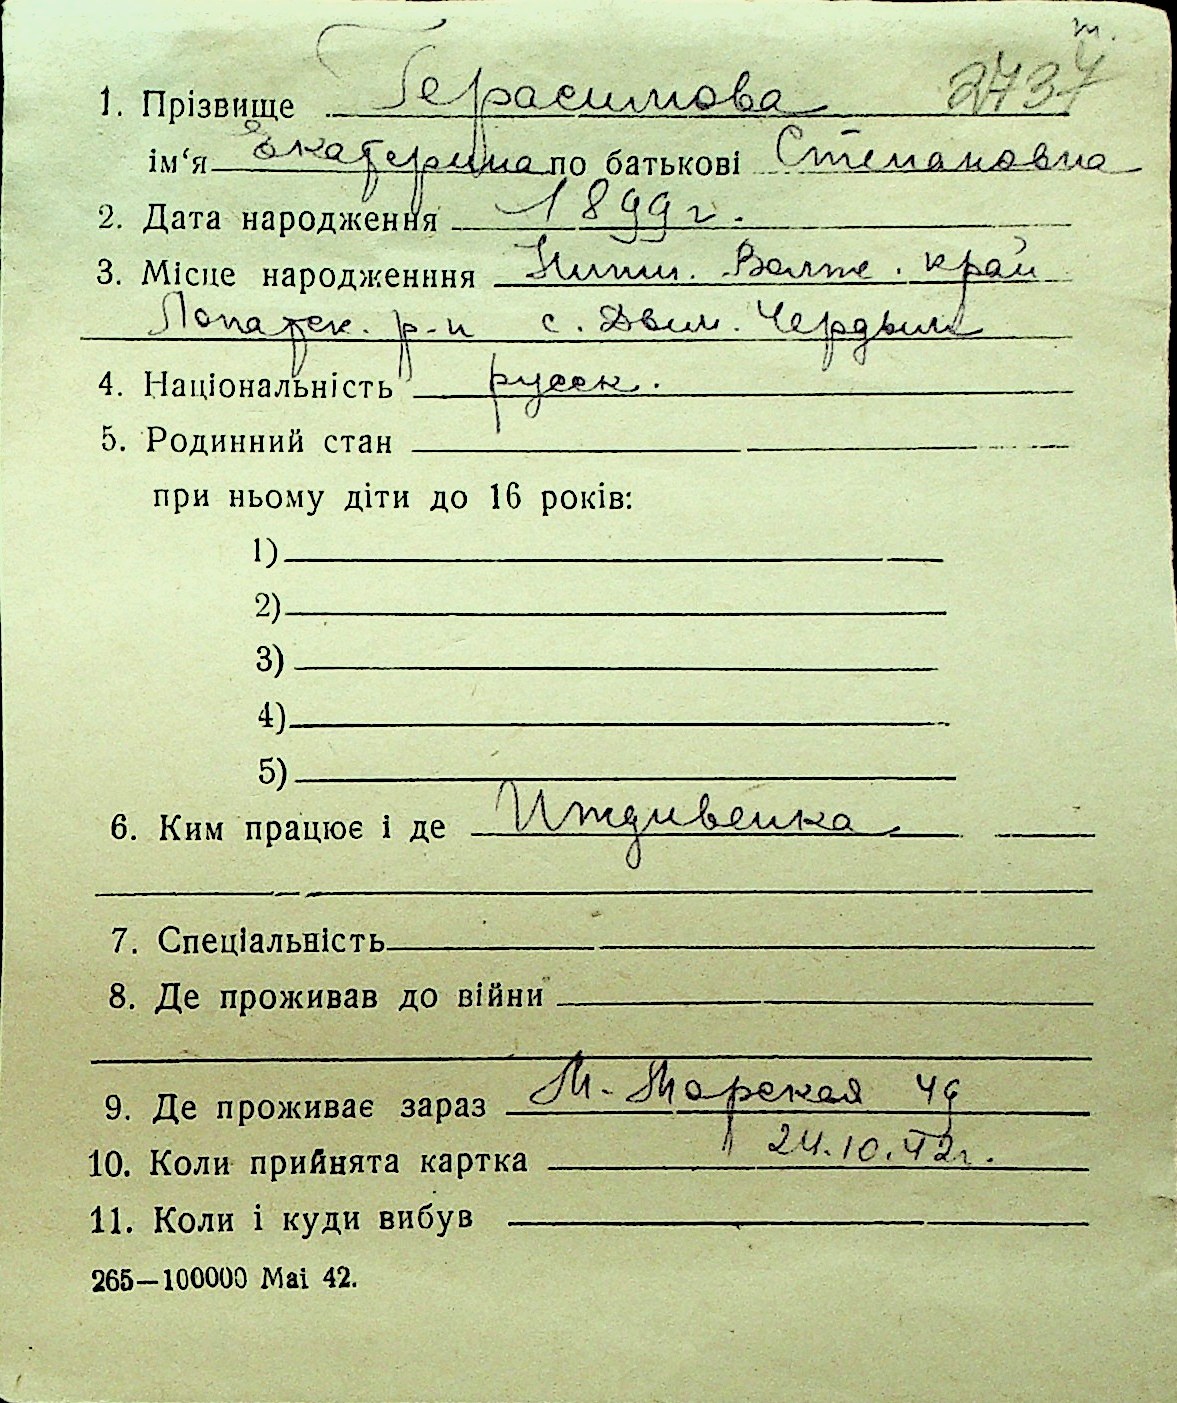 т.
1. Прізвище Герасимова 2737
ім‘я Екатерина по батькові Степановна
2. Дата народження 1899 г.
3. Місце народженння Нижн. Волж. край
Лопат. р-н с.
4. Національність русск.
5. Родинний стан
при ньому діти до 16 років:
1)
2)
3)
4)
5)
6. Ким працює і де Иждивенка
7. Спеціальність
8. Де проживав до війни
9. Де проживає зараз М-Морская 49
10. Коли прийнята картка 24.10.42г.
11. Коли і куди вибув
265—100000 Mai 42.